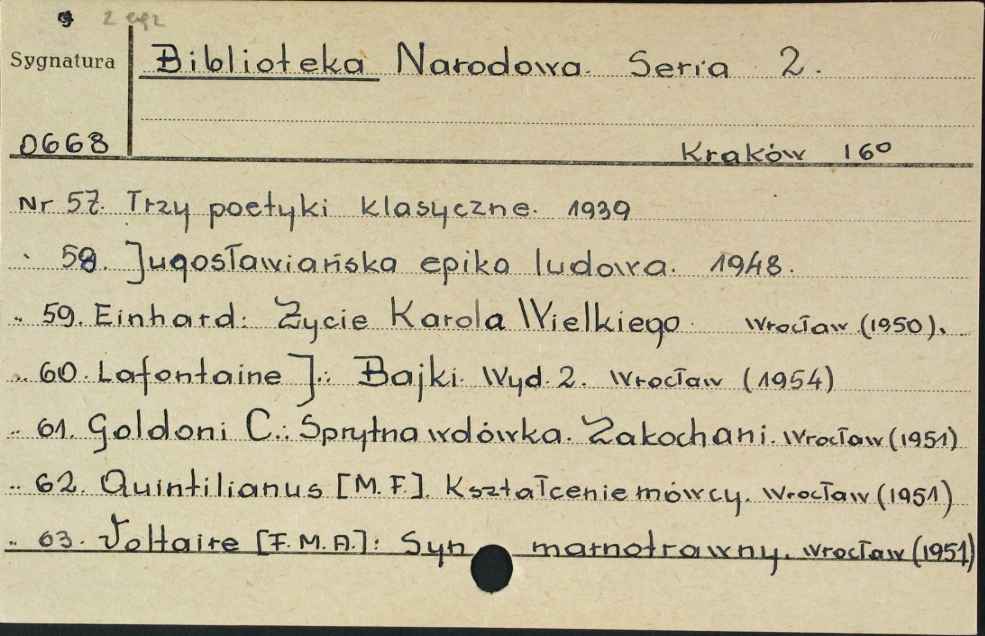 9 2 egz
Sygnatura Biblioteka Narodowa. Seria 2.
0668 Kraków 16°
Nr 57. Trzy poetyki klasyczne. 1939
" 58. Jugosławiańska epika ludowa. 1948.
" 59. Einhard: Życie Karola Wielkiego. Wrocław (1950).
" 60. Lafontaine J.: Bajki. Wyd. 2. Wrocław (1954)
" 61. Goldoni C.: Sprytna wdówka. Zakochani. Wrocław (1951)
" 62. Quintilianus [M. F.]. Kształcenie mówcy. Wrocław (1951)
" 63. Voltaire [F. M. A.]: Syn marnotrawny. Wrocław (1951)